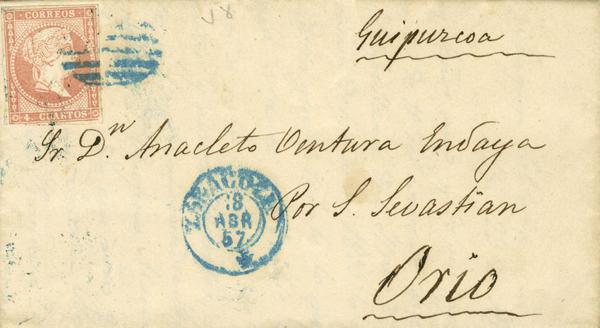 V8
CORREOS
4 CUARTOS
Guipurcoa
Sr Dn Anacleto Ventura Endaya
Por S. Sevastian
Orio
ZARAGOZA
18
ABR
57